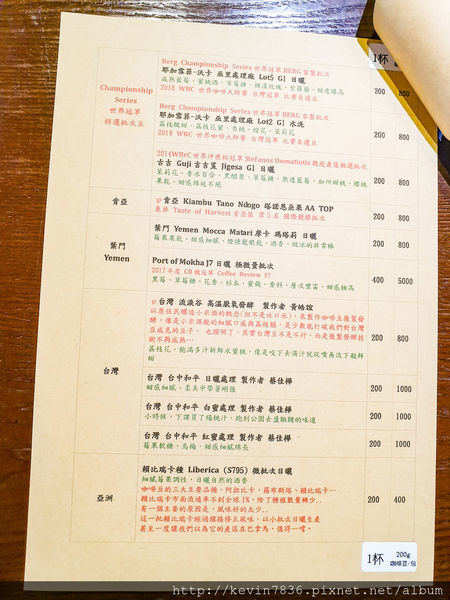 1杯
Berg Championship Series 世界冠軍 BERG 客製批次
耶加雪菲-沃卡 巫里處理廠 Lot5 G1 日曬
成熟藍莓、蜜桃酒、草莓糖、糖漬玫瑰、紫羅蘭、甜度極高
2018 WBC 世界咖啡大師賽 台灣冠軍 比賽自選豆
200 800
Championship
Series
世界冠軍
特選批次豆
Berg Championship Series 世界冠軍 BERG 客製批次
耶加雪菲-沃卡 巫里處理廠 Lot2 G1 水洗
荔枝酸甜、荔枝花蜜、香桃、橙花、茉莉花
2018 WBC 世界咖啡大師賽 台灣冠軍 比賽自選豆
200 800
2014WBrC世界沖煮杯冠軍Stefanos Domatiotis 親赴產區挑選批次
古吉 Guji 吉吉薩 Jigesa G1 日曬
茉莉花、香水百合、黑醋栗、草莓糖、熟透藍莓、加州甜桃、櫻桃
果乾、甜感綿延不絕
200 800
肯亞
肯亞 Kiambu Tano Ndogo 塔諾恩朵果 AA TOP
東非 Taste of Harvest 肯亞區 第5名 國際競標批次
200 800
葉門
Yemen
葉門 Yemen Mocca Matari 摩卡 瑪塔莉 日曬
莓果果乾、甜感細膩、煙燻龍眼乾、酒香，做冰的非常棒
200 800
Port of Mokha J7 日曬 極微量批次
2017 年度 CR 總冠軍 Coffee Review 97
黑莓、草莓糖、花香、杉木、蜜餞、香料、層次豐富、甜感極高
400 5000
台灣
台灣 流淚谷 高温厭氧發酵 製作者 黃皓誼
以原住民釀造小米酒的概念(但不是吐口水)，來製作咖啡豆後製發
酵，像是小米酒般的細膩口感與荔枝韻，是少數能打破我們對台灣
豆成見的豆子. 也證明了，其實台灣豆不是不行，而是後製發酵技
術不夠成熟…
荔枝花，飽滿多汁新鮮水蜜桃，像是咬下去湯汁就從嘴角流下般鮮
甜
200 800
台灣 台中和平 日曬處理 製作者 蔡佳樺
甜感細膩，柔美中帶著剛強
200 1000
台灣 台中和平 白蜜處理 製作者 蔡佳樺
小時候，下課買了楊桃汁，跑到公園去盪鞦韆的味道
200 1000
台灣 台中和平 紅蜜處理 製作者 蔡佳樺
莓果軟糖，烏梅，甜感細膩綿長
200 1000
亞洲
賴比瑞卡種 Liberica (S795) 微批次日曬
細膩莓果調性，日曬自然的酒香
咖啡豆的三大主要品種，阿拉比卡、羅布斯塔、賴比瑞卡…
賴比瑞卡市面流通率不到全球 1%，除了種植數量稀少..
有一個主要的原因是，風味好的太少..
這一批賴比瑞卡經過種種修正風味，以小批次日曬生產
甚至一度讓我們以為它的產區在巴拿馬，值得一嚐。
200 400
1杯
200g
咖啡豆/包
http://kevin7836.pixnet.net/album